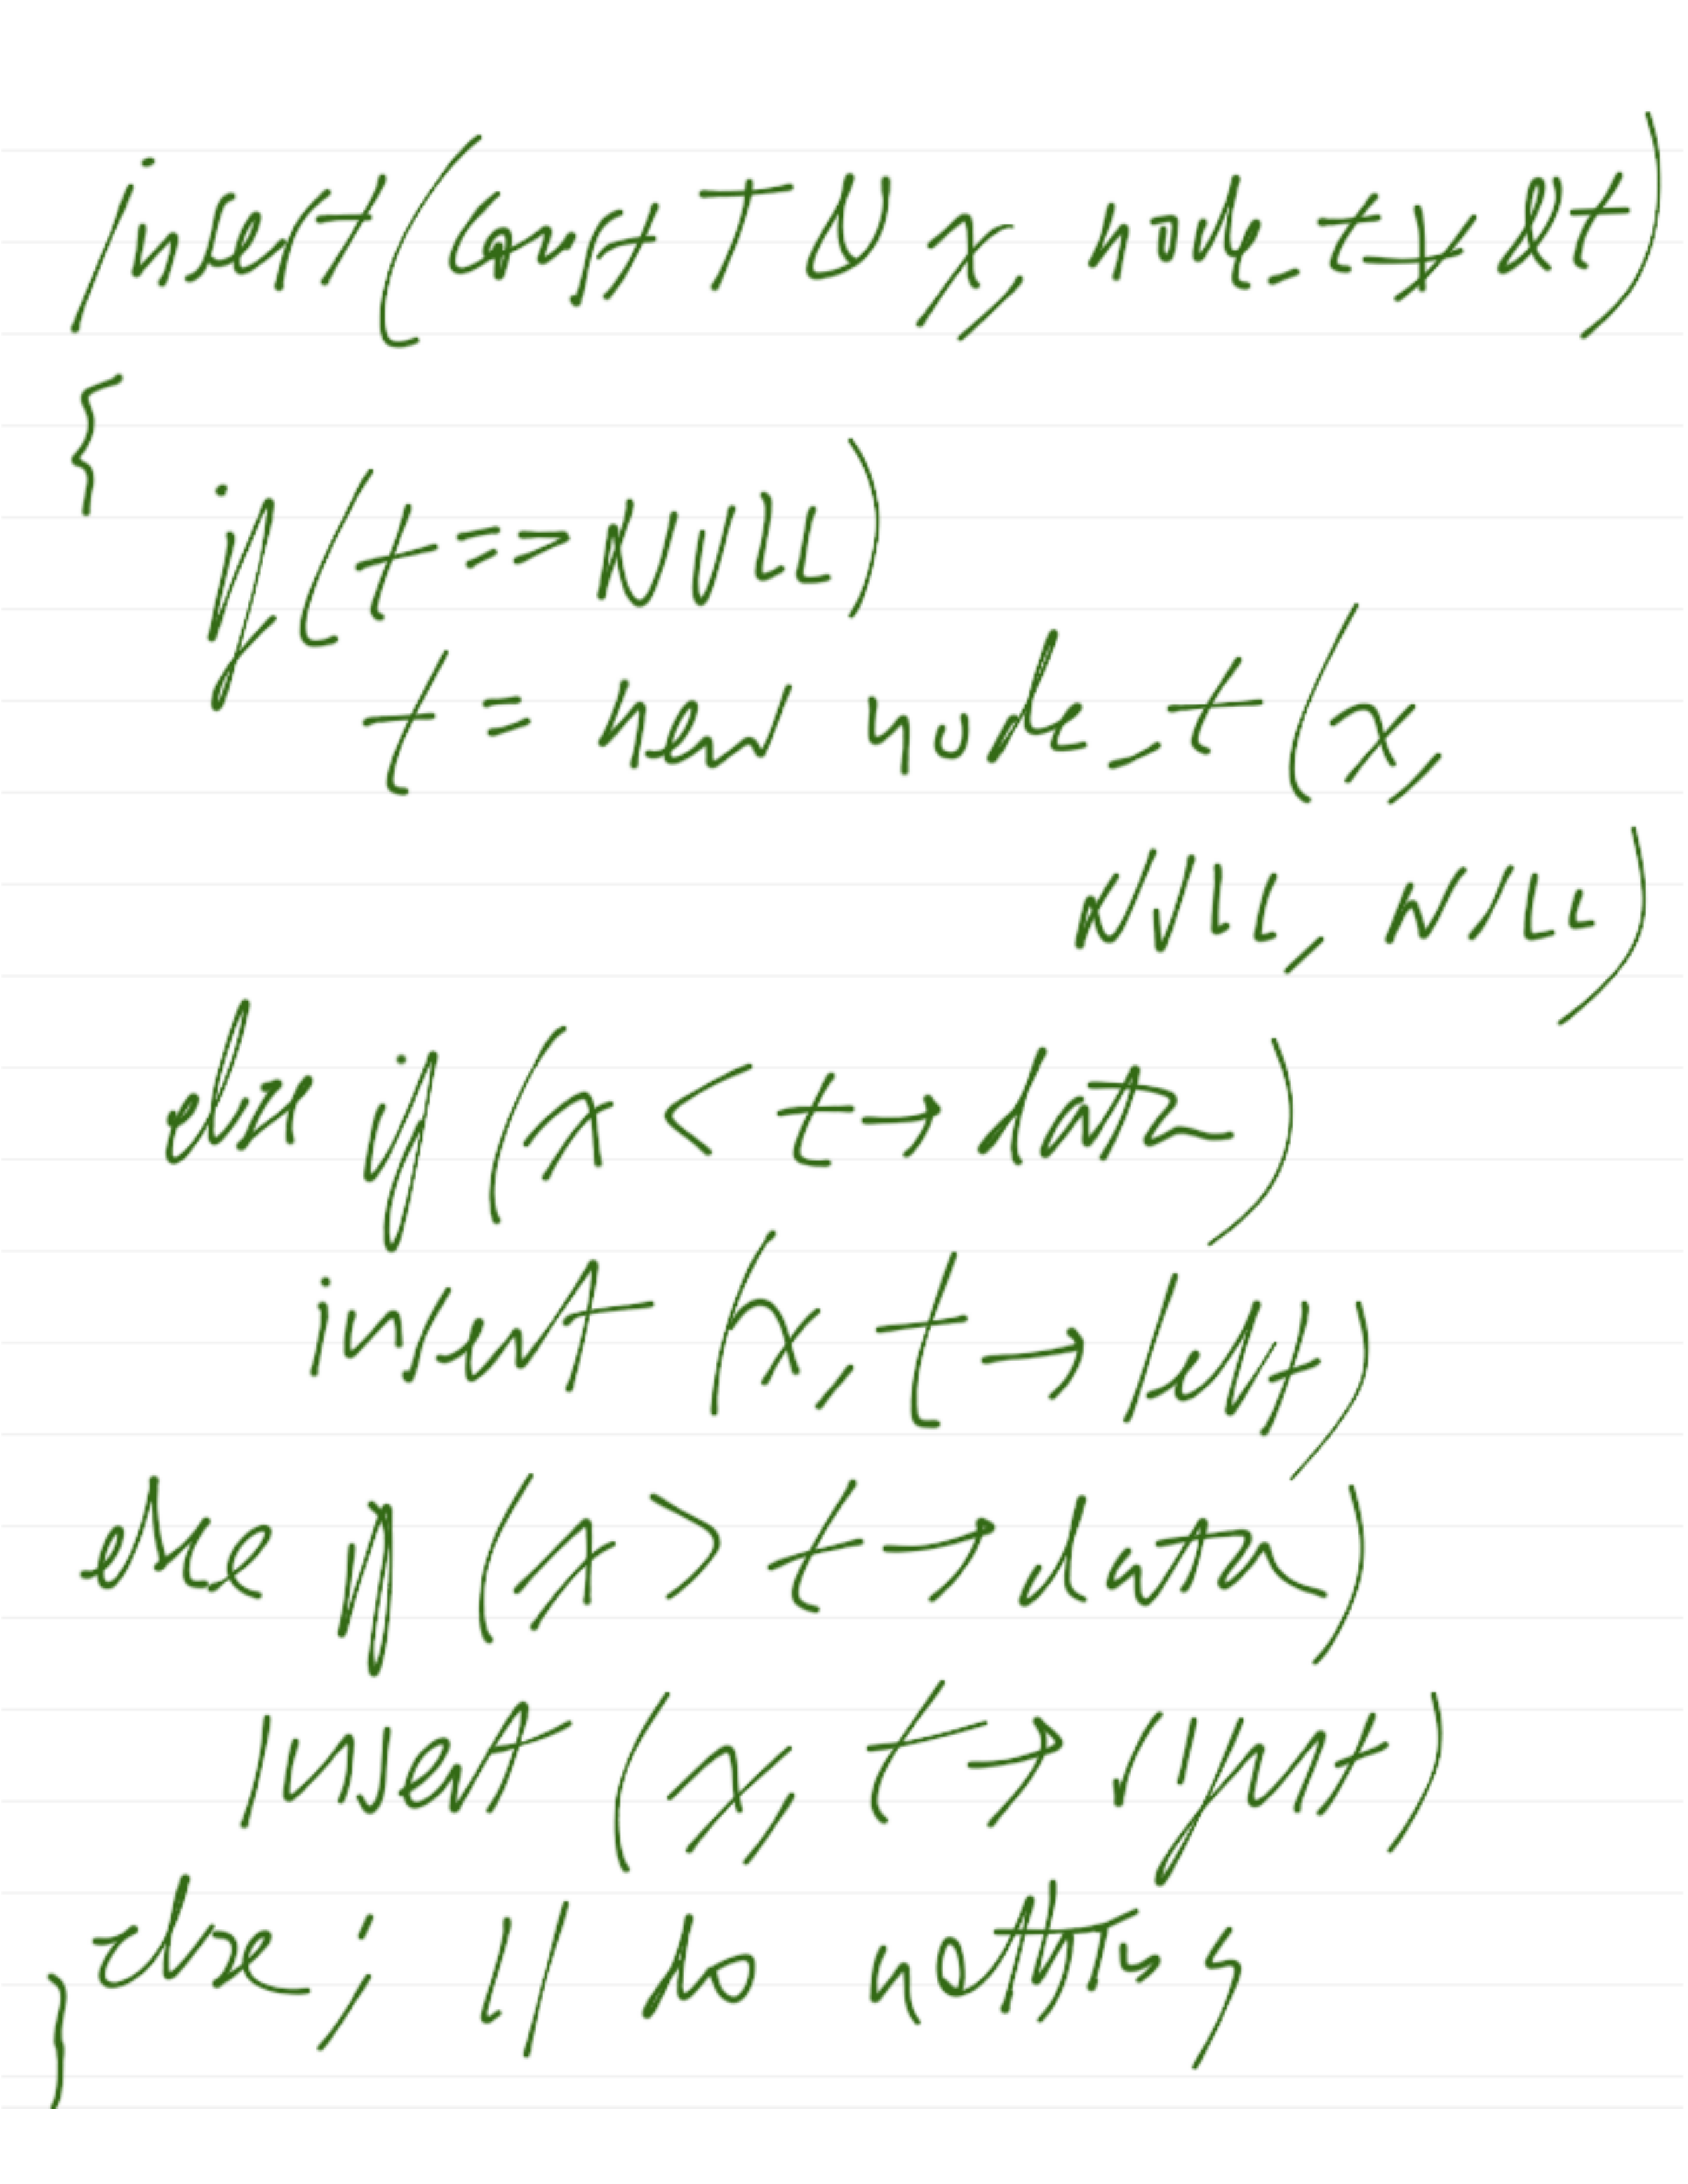 insert (const T & x, node_t * &t)
{
if (t == NULL)
t = new node_t (x,
NULL, NULL)
else if (x < t → data)
insert (x, t → left)
else if (x > t → data)
insert (x, t → right)
else ; // do nothing
}